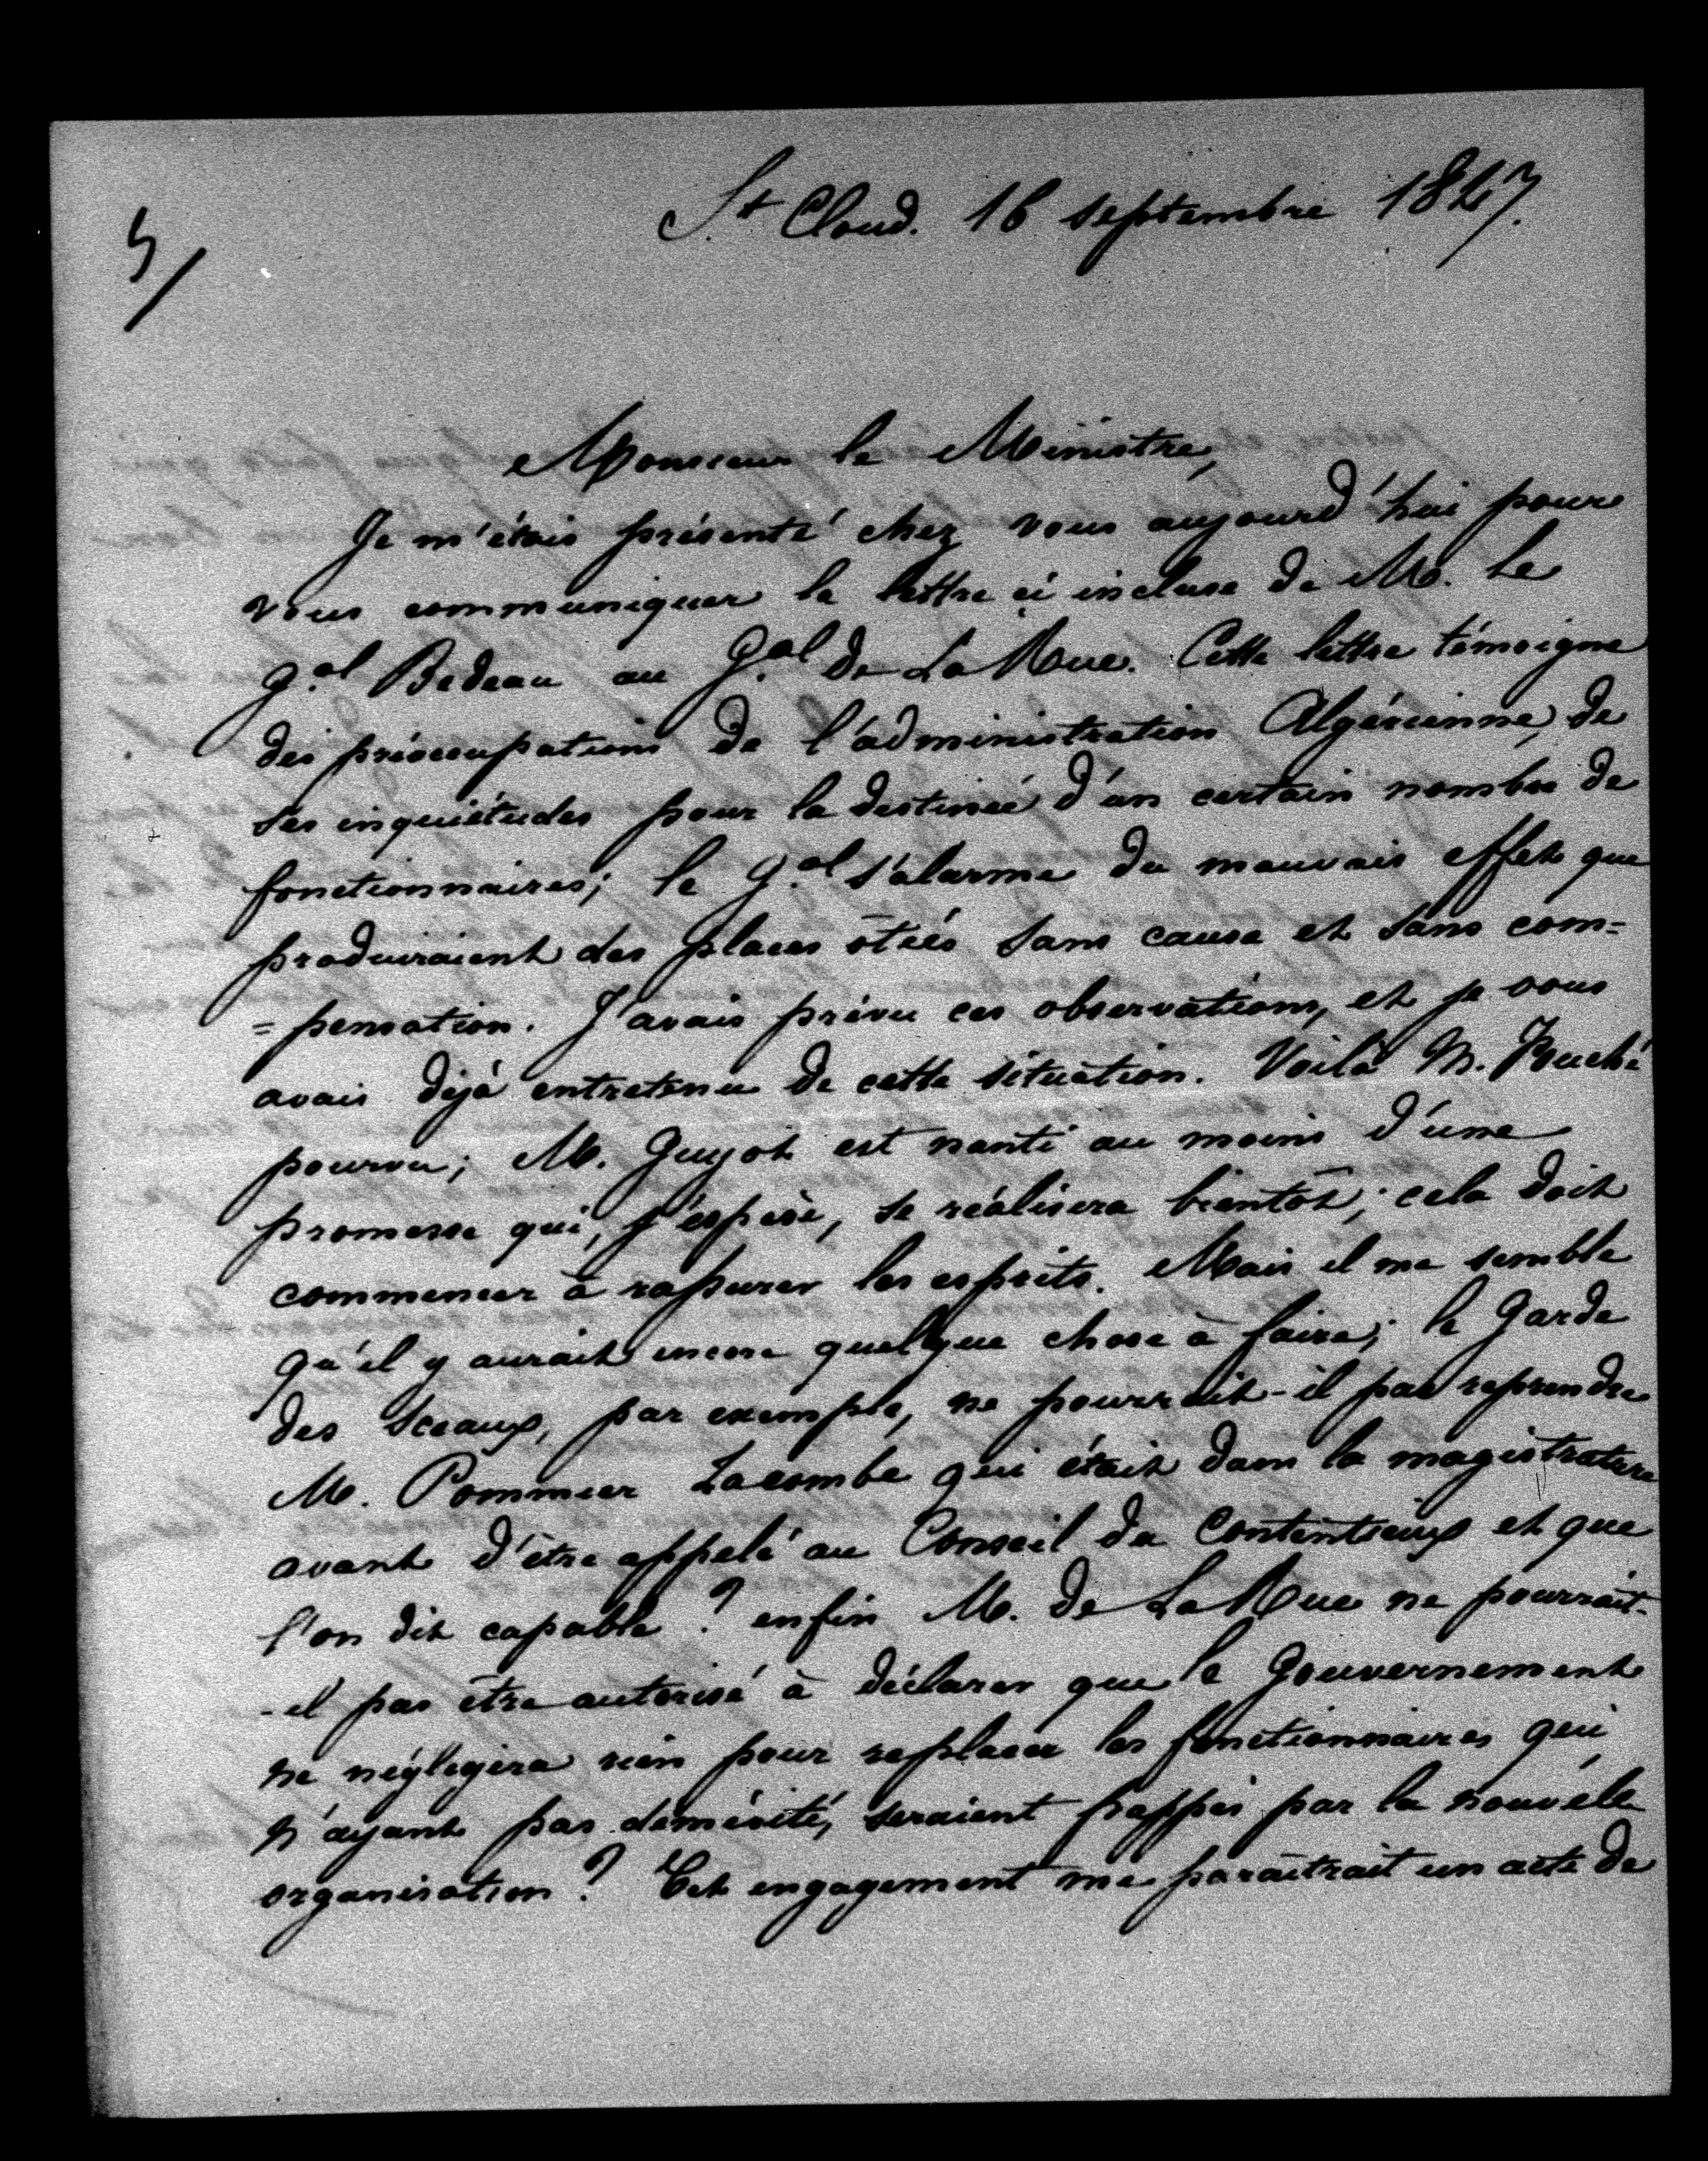 St Cloud. 16 septembre 1847.
5/
Monsieur le Ministre,
Je m'étais présenté chez vous aujourd'hui pour
vous communiquer la lettre ci incluse de M. le
Gal Bedeau au Gal de La Rue. Cette lettre témoigne
des préoccupations de l'administration Algérienne, de
ses inquiétudes pour la destinée d'un certain nombre de
fonctionnaires; le Gal s'alarme du mauvais effet que
produiraient des places ôtées sans cause et sans com=
=pensation. J'avais prévu ces observations, et je vous
avais déjà entretenu de cette situation. Voilà M.
pourvu; M. Guyot est nanti au moins d'une
promesse qui, j'espère, se réalisera bientôt; cela doit
commencer à rassurer les esprits. Mais il me semble
qu'il y aurait encore quelque chose à faire; le Garde
des Sceaux, par exemple, ne pourrait-il pas reprendre
M. Pommier Lacombe qui était dans la magistrature
avant d'être appelé au Conseil du Contentieux et que
l'on dit capable? enfin M. de La Rue ne pourrait-
-il pas être autorisé à déclarer que le Gouvernement
ne négligera rien pour replacer les fonctionnaires qui
n'ayant pas démérité, seraient frappés par la nouvelle
organisation? Cet engagement me paraîtrait un acte de